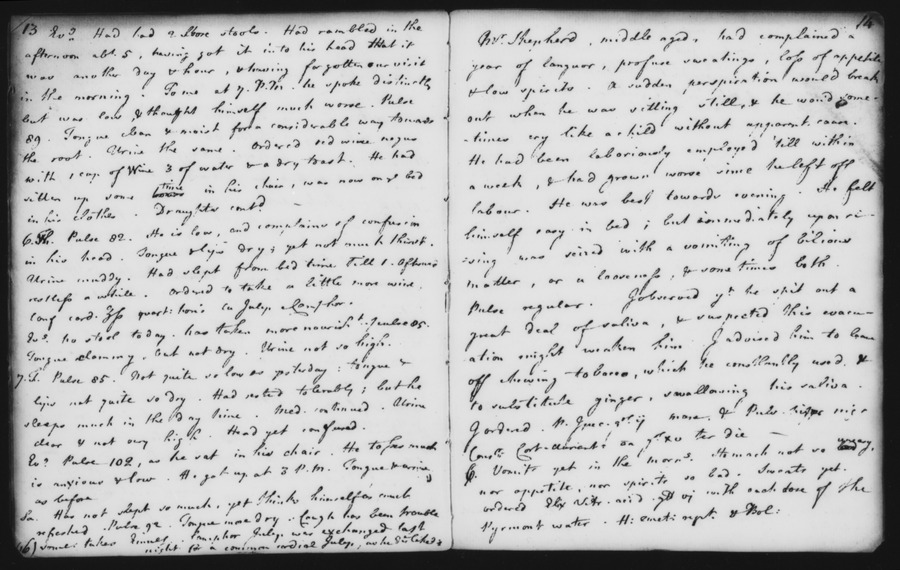 13 Evg. Had had 2 more stools. Had rambled in the
afternoon abt. 5, having got it into his head that it
was another day & hour, & having forgotten our visit
in the morning. To me at 7. P.M. he spoke distinctly
but was low & thought himself much worse. Pulse
89. Tongue clean & moist for a considerable way towards
the root. Urine the same. Ordered red wine negus
with 1 cup of Wine 3 of water & a dry toast. He had
sitten up some time in his chair, was now on ye bed
in his clothes. Draughts contd —
6. Th. Pulse 82. He is low, and complains of confusion
in his head. Tongue & lips dry; yet not much thirst.
Urine muddy. Had slept from bed time till 1. Afterwds
restless a while. Ordered to take a little more wine,
Conf. card. ʒſs quart. horis cu Julep. e Camphor.
Evg. no stool today. has taken more nourisht. Pulse 85.
Tongue clammy, but not dry. Urine not so high.
7. F. Pulse 85. Not quite so low as yesterday: tongue &
lips not quite so dry. Had rested tolerably; but he
sleeps much in the day time. Med. continued. Urine
clear & not very high. Head yet confused.
Evg. Pulse 102, as he sat in his chair. He tosses much
is anxious & low. He got up at 3 P.M. Tongue & urine
as before
Sa. Has not slept so much, yet thinks himself as much
refreshed. Pulse 92. Tongue more dry. Cough has been trouble
some: takes dinner. Camphor Julep was exchanged last
night for a common cordial Julep, as he disliked it
14
Mr. Shepherd, middle aged, had complained a
year of languor, profuse sweatings, loss of appetite
& low spirits. A sudden perspiration would break
out when he was sitting still, & he would some-
-times cry like a child without apparent cause.
He had been laboriously employed 'till within
a week, & had grown worse since he left off
labour. He was best towards evening. He felt
himself easy in bed; but immediately upon ri-
sing was seized with a vomiting of bilious
matter, or a looseness, & sometimes both.
Pulse regular. I observed yt he spit out a
great deal of saliva, & suspected this evacu-
ation might weaken him. I advised him to leave
off chewing tobacco, which he constantly used, &
to substitute ginger, swallowing his saliva.
I ordered. P. Ipec. gr. ij mane, & Pulv.
Cons. Cort. aurant. aa gr. xv ter die —
6. Vomits yet in the morng. Stomach not so uneasy,
nor appetite, nor spirits so bad. Sweats yet.
ordered Elix. Vitr. acid. with each dose of the
Pyrmont water. H: Emetic rept. & Bol: